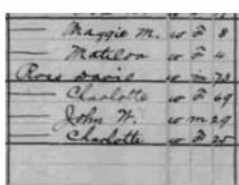 — Maggie M. w F 8
— Matilda w F 4
Ross David w m 73
— Charlotte w F 69
— John W. w m 29
— Charlotte w F 25